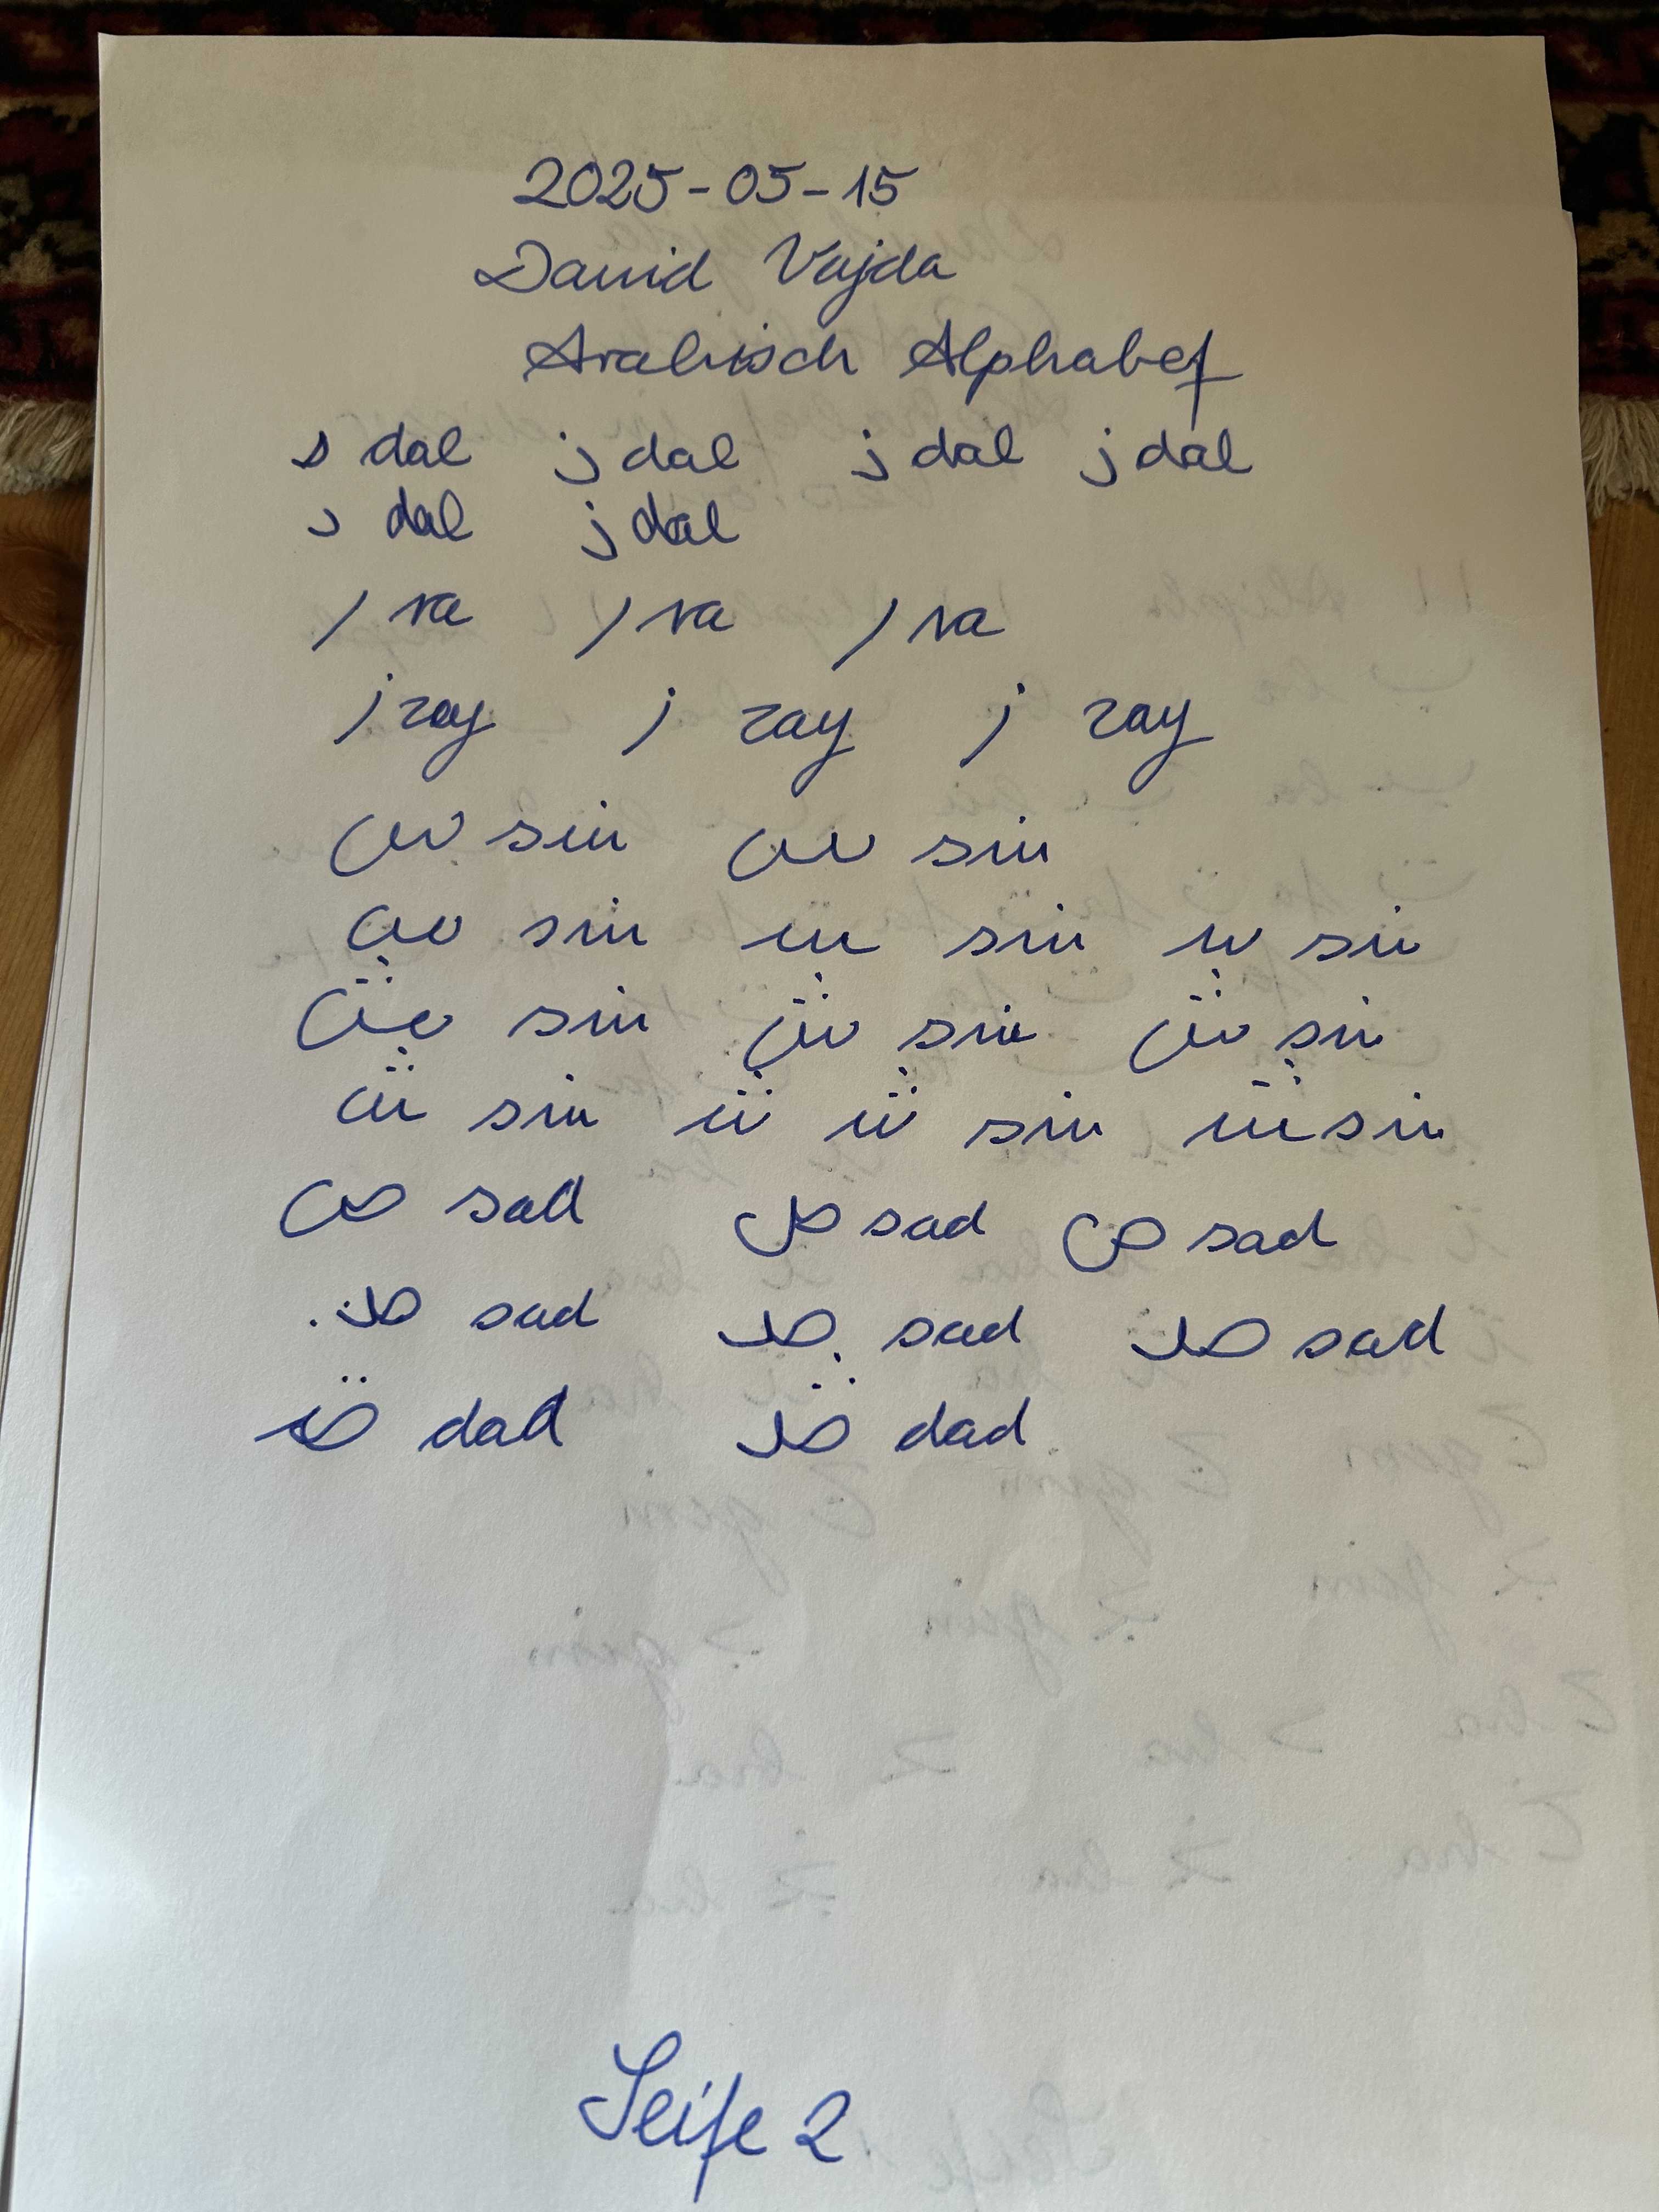 2025-05-15
David Vajda
Arabisch Alphabet
د dal ذ dal ذ dal ذ dal
د dal ذ dal
ر ra ر ra ر ra
ز zay ز zay ز zay
س sin س sin
س sin سـ sin سـ sin
ش sin ش sin ش sin
شـ sin شـ شـ sin شـ sin
ص sad ص sad ص sad
صـ sad صـ sad صـ sad
ضـ dad ضـ dad
Seite 2